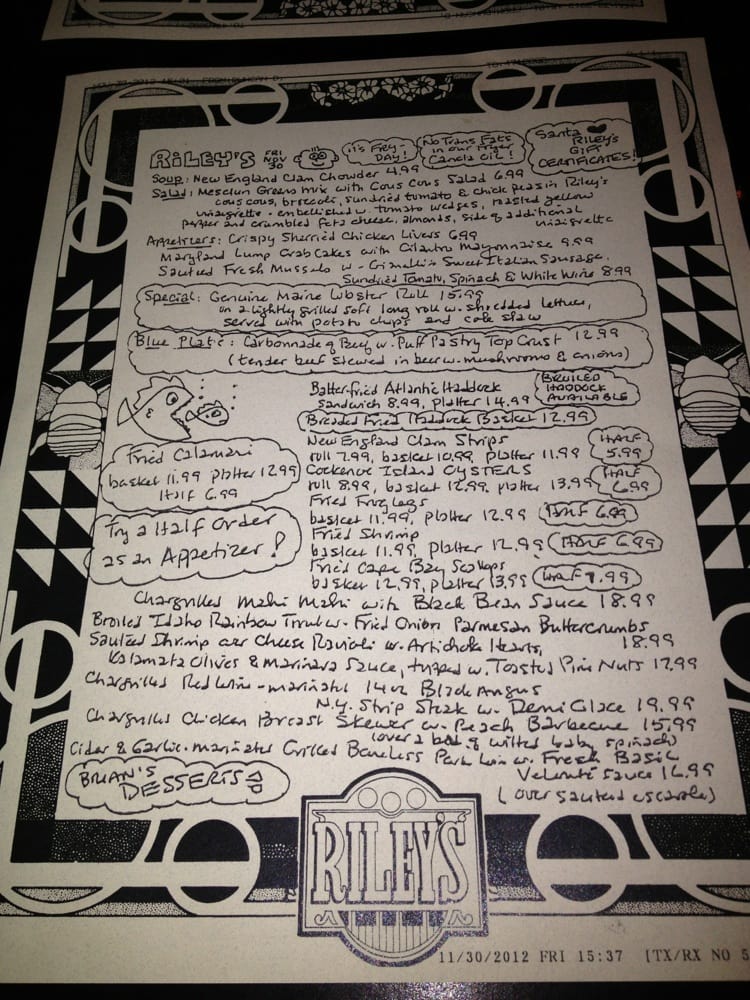 RILEY'S FRI NOV 30 it's FRY-DAY! No Trans Fats in our Fryer Canola Oil! Santa ♥ RILEY'S GIFT CERTIFICATES!
Soup: New England Clam Chowder 4.99 6.99
Salad: Mesclun Greens mix with Cous Cous Salad
cous cous, broccoli, sundried tomato & chick peas in Riley's
vinaigrette - embellished w. tomato wedges, roasted yellow
pepper and crumbled feta cheese, almonds, side of additional
vinaigrette
Appetizers: Crispy Sherried Chicken Livers 6.99
Maryland Lump Crab Cakes with Cilantro Mayonnaise 9.99
Sautéed Fresh Mussels w. Gianelli's Sweet Italian Sausage,
Sundried Tomato, Spinach & White Wine 8.99
Special: Genuine Maine Lobster Roll 15.99
on a lightly grilled soft long roll w. shredded lettuce,
served with potato chips and cole slaw
Blue Plate: Carbonnade of Beef w. Puff Pastry Top Crust 12.99
(tender beef stewed in beer w. mushrooms & onions)
Batter-fried Atlantic Haddock
sandwich 8.99, platter 14.99
BROILED HADDOCK AVAILABLE
Breaded Fried Haddock Basket 12.99
Fried Calamari
basket 11.99 platter 12.99
Half 6.99
Try a Half Order
as an Appetizer!
New England Clam Strips
roll 7.99, basket 10.99, platter 11.99
HALF 5.99
Cockenoe Island OYSTERS
roll 8.99, basket 12.99, platter 13.99
HALF 6.99
Fried Frog legs
basket 11.99, platter 12.99 HALF 6.99
Fried Shrimp
basket 11.99, platter 12.99 HALF 6.99
Fried Cape Bay Scallops
basket 12.99, platter 13.99 HALF 7.99
Chargrilled Mahi Mahi with Black Bean Sauce 18.99
Broiled Idaho Rainbow Trout w. Fried Onion Parmesan Buttercrumbs
18.99
Sautéed Shrimp over Cheese Ravioli w. Artichoke Hearts,
Kalamata Olives & Marinara Sauce, topped w. Toasted Pine Nuts 17.99
Chargrilled Red Wine-marinated 14oz Black Angus
N.Y. Strip Steak w. Demi Glace 19.99
Chargrilled Chicken Breast Skewer w. Peach Barbecue 15.99
(over a bed of wilted baby spinach)
Cider & Garlic-marinated Grilled Boneless Pork Loin w. Fresh Basil
Velouté Sauce 16.99
(over sautéed escarole)
BRIAN'S
DESSERTS
RILEY'S
11/30/2012 FRI 15:37 [TX/RX NO 5